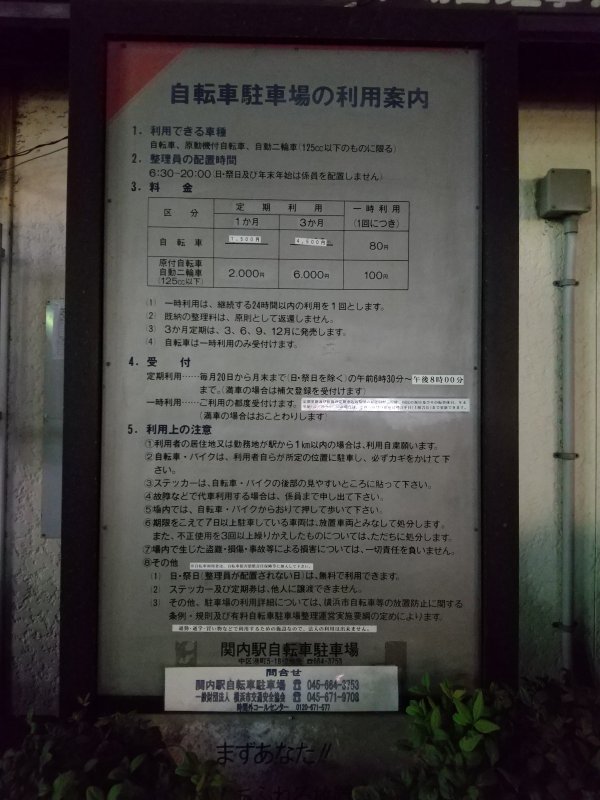 自転車駐車場の利用案内
1. 利用できる車種
自転車、原動機付自転車、自動二輪車(125cc以下のものに限る)
2. 整理員の配置時間
6:30-20:00(日・祭日及び年末年始は係員を配置しません)
3. 料 金
区 分 定 期 利 用 一時利用
1か月 3か月 (1回につき)
自 転 車 1,500円 4,500円 80円
原付自転車
自動二輪車 2,000円 6,000円 100円
(125cc以下)
(1) 一時利用は、継続する24時間以内の利用を1回とします。
(2) 既納の整理料は、原則として返還しません。
(3) 3か月定期は、3、6、9、12月に発売します。
(4) 自転車は一時利用のみ受付けます。
4. 受 付
定期利用……毎月20日から月末まで(日・祭日を除く)の午前6時30分〜午後8時00分
まで。(満車の場合は補欠登録を受付けます)
一時利用……ご利用の都度受付けます。
(満車の場合はおことわりします)
5. 利用上の注意
①利用者の居住地又は勤務地が駅から1km以内の場合は、利用自粛願います。
②自転車・バイクは、利用者自らが所定の位置に駐車し、必ずカギをかけて下
さい。
③ステッカーは、自転車・バイクの後部の見やすいところに貼って下さい。
④故障などで代車利用する場合は、係員まで申し出て下さい。
⑤場内では、自転車・バイクからおりて押して歩いて下さい。
⑥期限をこえて7日以上駐車している車両は、放置車両とみなして処分します。
また、不正使用を3回以上繰りかえしたものについては、ただちに処分します。
⑦場内で生じた盗難・損傷・事故等による損害については、一切責任を負いません。
⑧その他
(1) 日・祭日(整理員が配置されない日)は、無料で利用できます。
(2) ステッカー及び定期券は、他人に譲渡できません。
(3) その他、駐車場の利用詳細については、横浜市自転車等の放置防止に関する
条例・規則及び有料自転車駐車場整理運営実施要綱の定めによります。
通勤・通学・買い物などで利用するための施設なので、法人の利用は出来ません。
関内駅自転車駐車場
中区港町5-18 ☎664-3753
問合せ
関内駅自転車駐車場 ☎ 045-664-3753
一般財団法人 横浜市交通安全協会 ☎ 045-671-9708
時間外コールセンター 0120-671-577
まずあなた!!